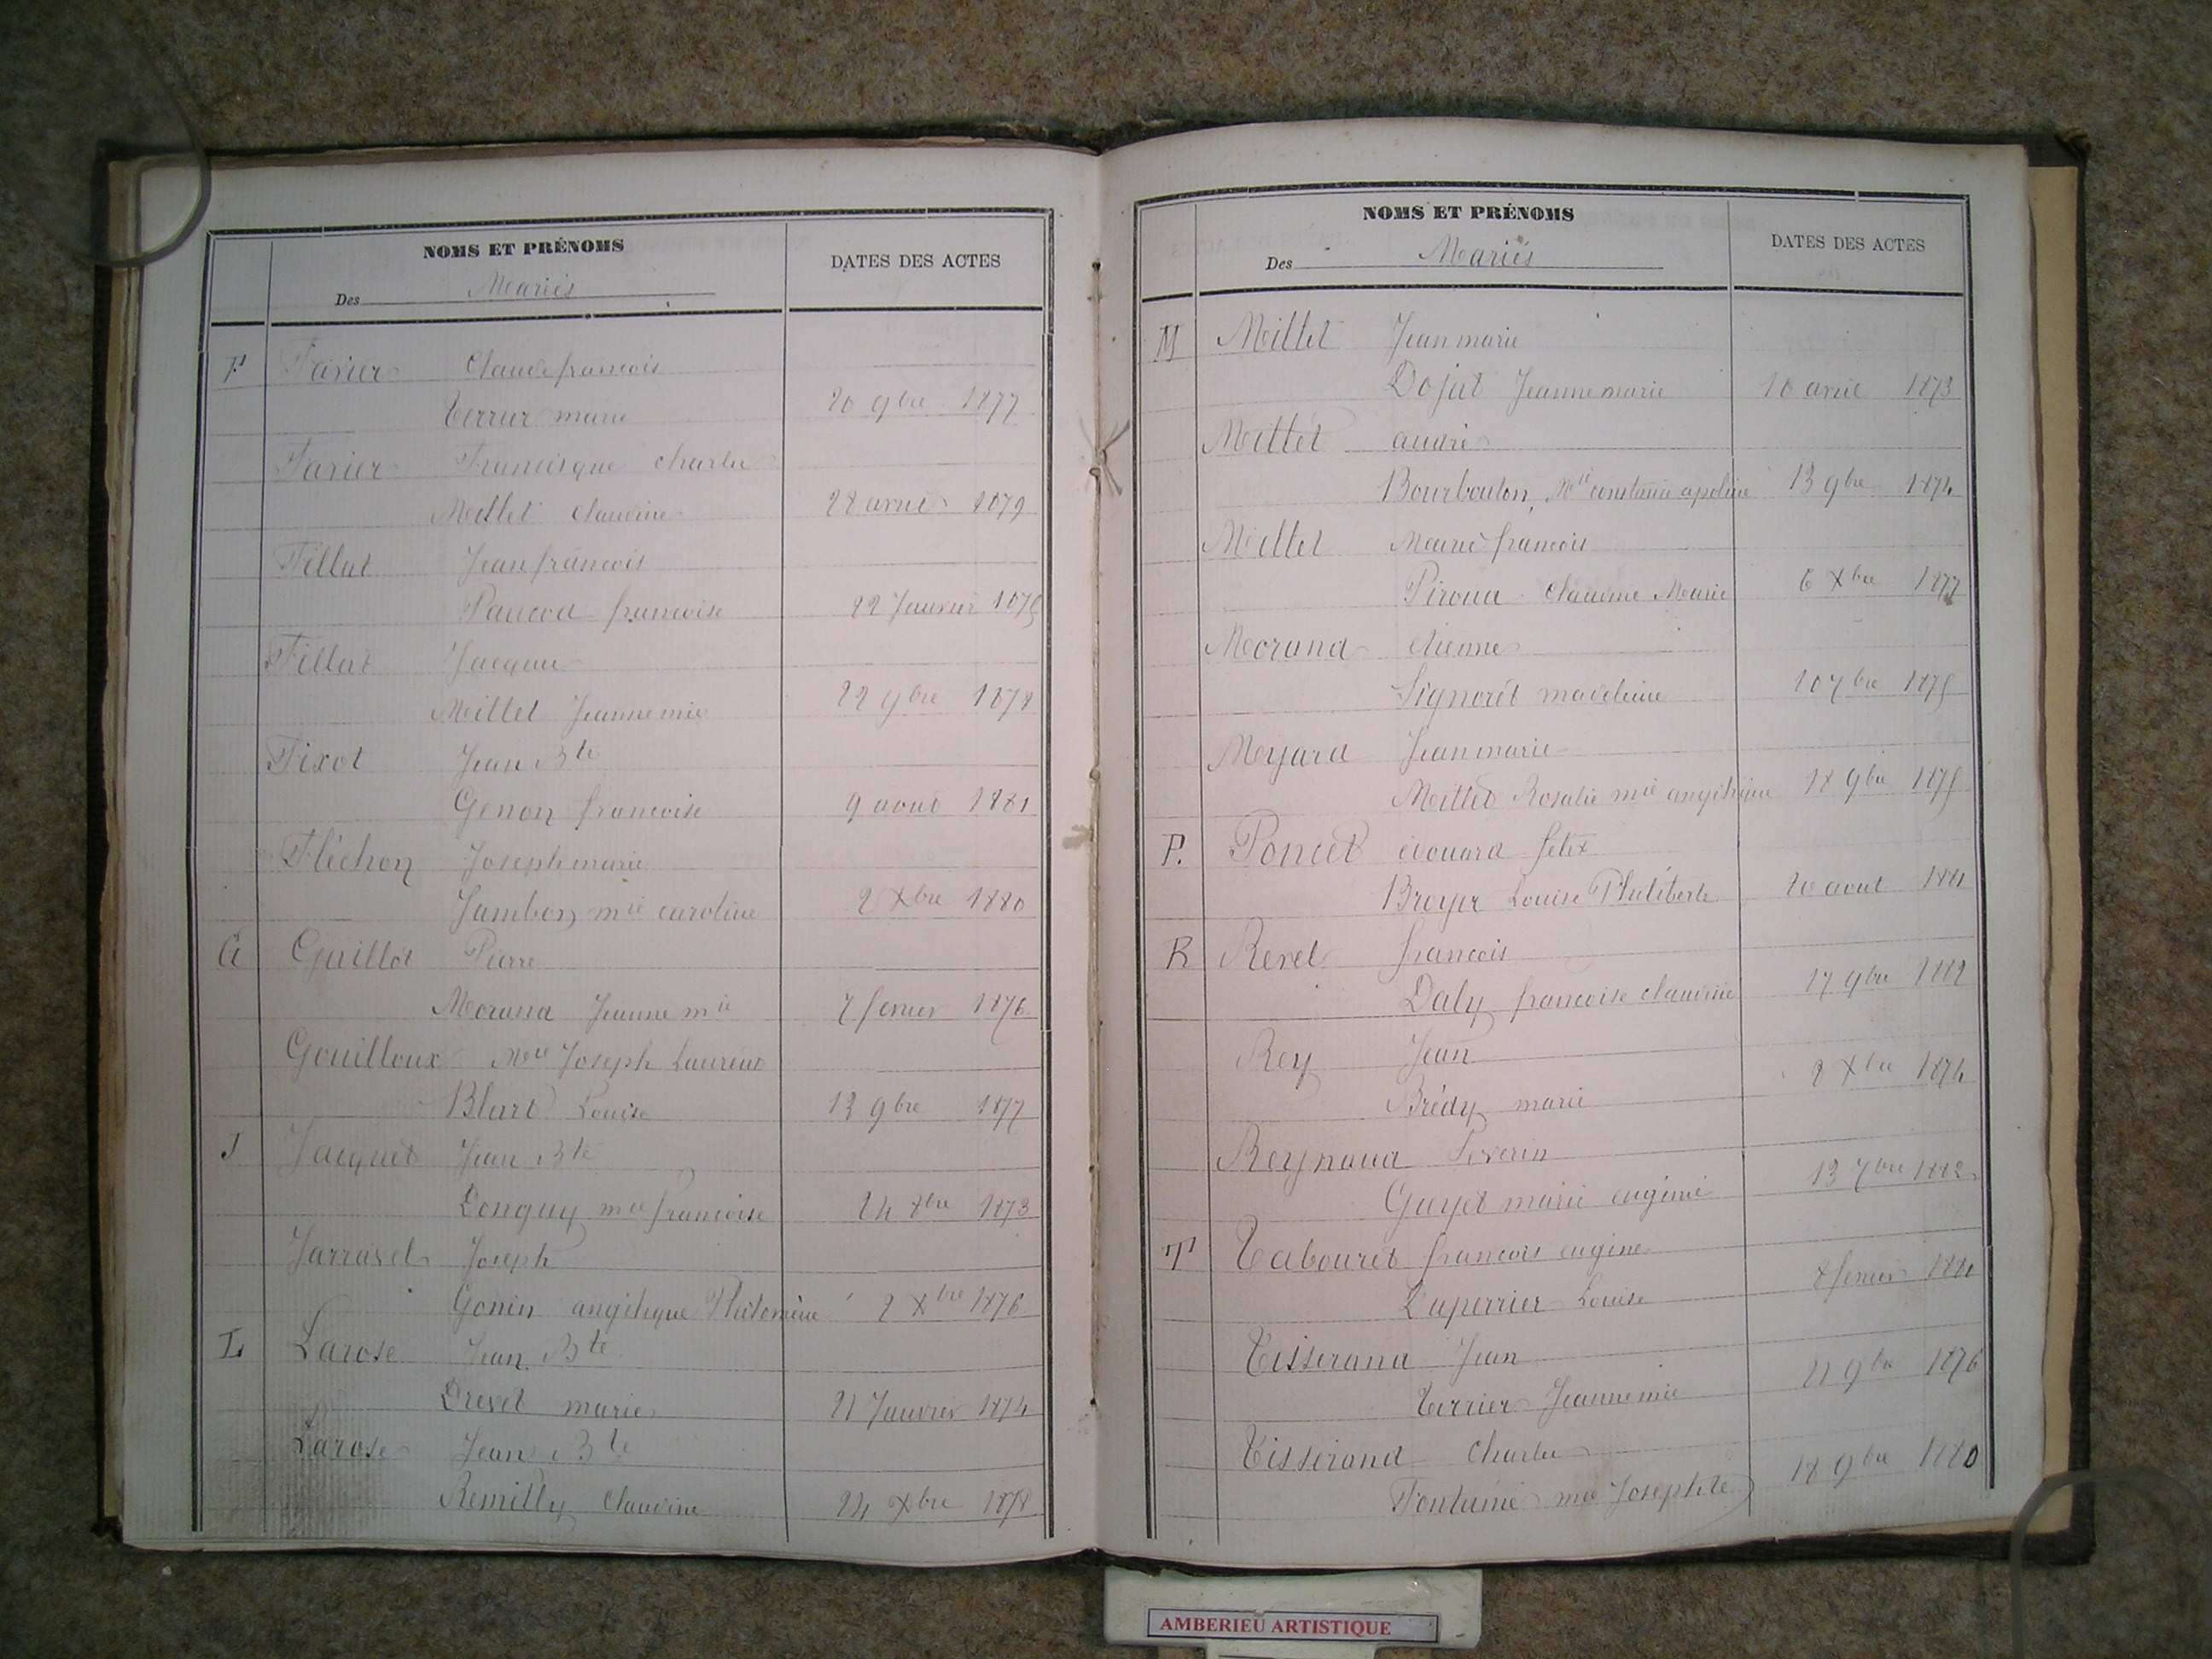 NOMS ET PRÉNOMS
Des Mariés
DATES DES ACTES
F Favier Claude françois
Terrier marie 20 9bre 1877
Favier Francisque Charles
Millet Claudine 28 avril 1879
Fillat Jean françois
Pancod françoise 22 Janvier 1875
Fillat Jacques
Millet Jeanne mie 22 9bre 1878
Fixot Jean Bte
Genon françoise 9 aout 1881
Fléchon Joseph marie
Jambon mie caroline 2 Xbre 1880
G Guillot Pierre
Morand Jeanne mie 7 fevrier 1876
Gouilloux Mie Joseph Laurent
Blart Louise 13 9bre 1877
J Jacquet Jean Bte
Donguy mie françoise 24 Xbre 1873
Jarrasel Joseph
Gonin angélique Philomène 2 Xbre 1876
L Larose Jean Bte
Drevet marie 21 Janvier 1874
Larose Jean Bte
Remilly Claudine 24 Xbre 1878
NOMS ET PRÉNOMS
Des Mariés
DATES DES ACTES
M Millet Jean marie
Dojat Jeanne marie 10 avril 1873
Millet andré
Bourboulon, Mie constance apoline 13 9bre 1874
Millet Marie françois
Piroud Claudine Marie 6 Xbre 1877
Morand étienne
Signorét madeleine 10 7bre 1875
Moyard Jean marie
Millet Rosalie mie angélique 18 9bre 1875
P. Poncet édouard félix
Broyer Louise Philiberte 20 aout 1881
R Revel françois
Daly françoise claudine 17 9bre 1882
Rey Jean
Brédy marie 2 Xbre 1874
Reynaud Séverin
Guyet marie eugénie 13 7bre 1882
T Tabouret françois eugène
Duperrier Louise 8 fevrier 1881
Tisserand Jean
Terrier Jeanne mie 21 9bre 1876
Tisserand Charles
Fontaine mie Josephte 18 9bre 1880
AMBERIEU ARTISTIQUE